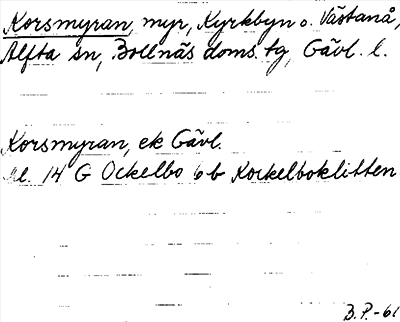 Korsmyran, myr, Kyrkbyn o. Västanå,
Alfta sn, Bollnäs doms. tg, Gävl. l.
Korsmyran, ek Gävl.
bl. 14 G Ockelbo 6b Kockelboklitten
B.P.-61